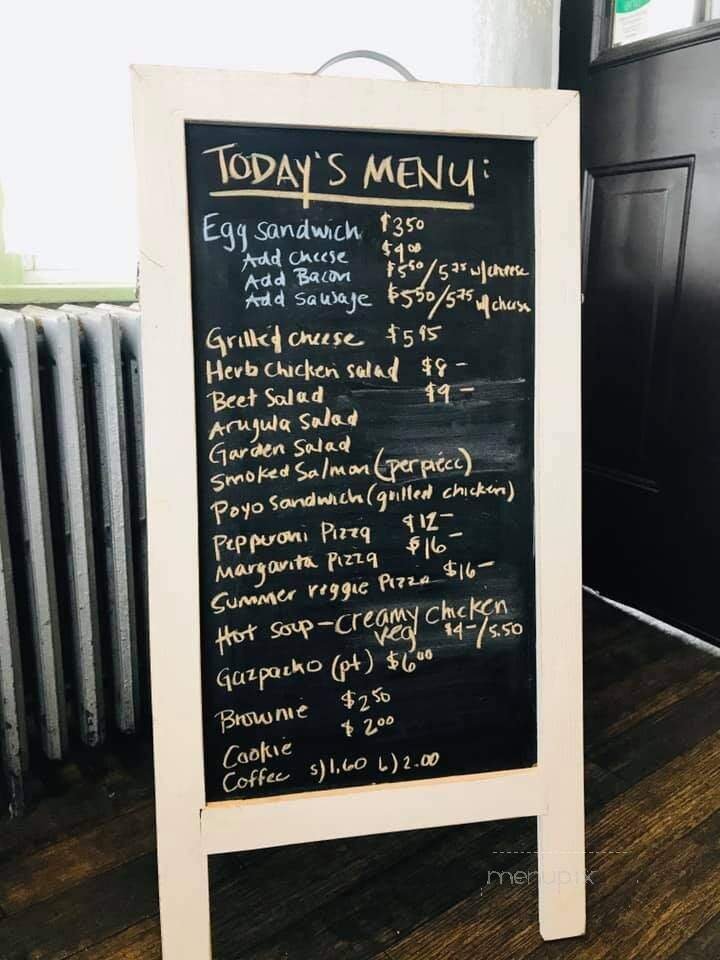 TODAY'S MENU:
Egg sandwich $3 50
Add cheese $4 00
Add Bacon $5 50/5 75 w/cheese
Add sausage $5 50/5 75 w/cheese
Grilled cheese $5 95
Herb chicken salad $8 -
Beet Salad $9 -
Arugula Salad
Garden Salad
Smoked Salmon (per piece)
Poyo sandwich (grilled chicken)
Pepperoni Pizza $12 -
Margarita Pizza $16 -
Summer veggie Pizza $16 -
Hot soup - creamy chicken
veg $4-/5.50
Gazpacho (pt) $6 00
Brownie $2 50
Cookie $2 00
Coffee s) 1.60 L) 2.00
menupix